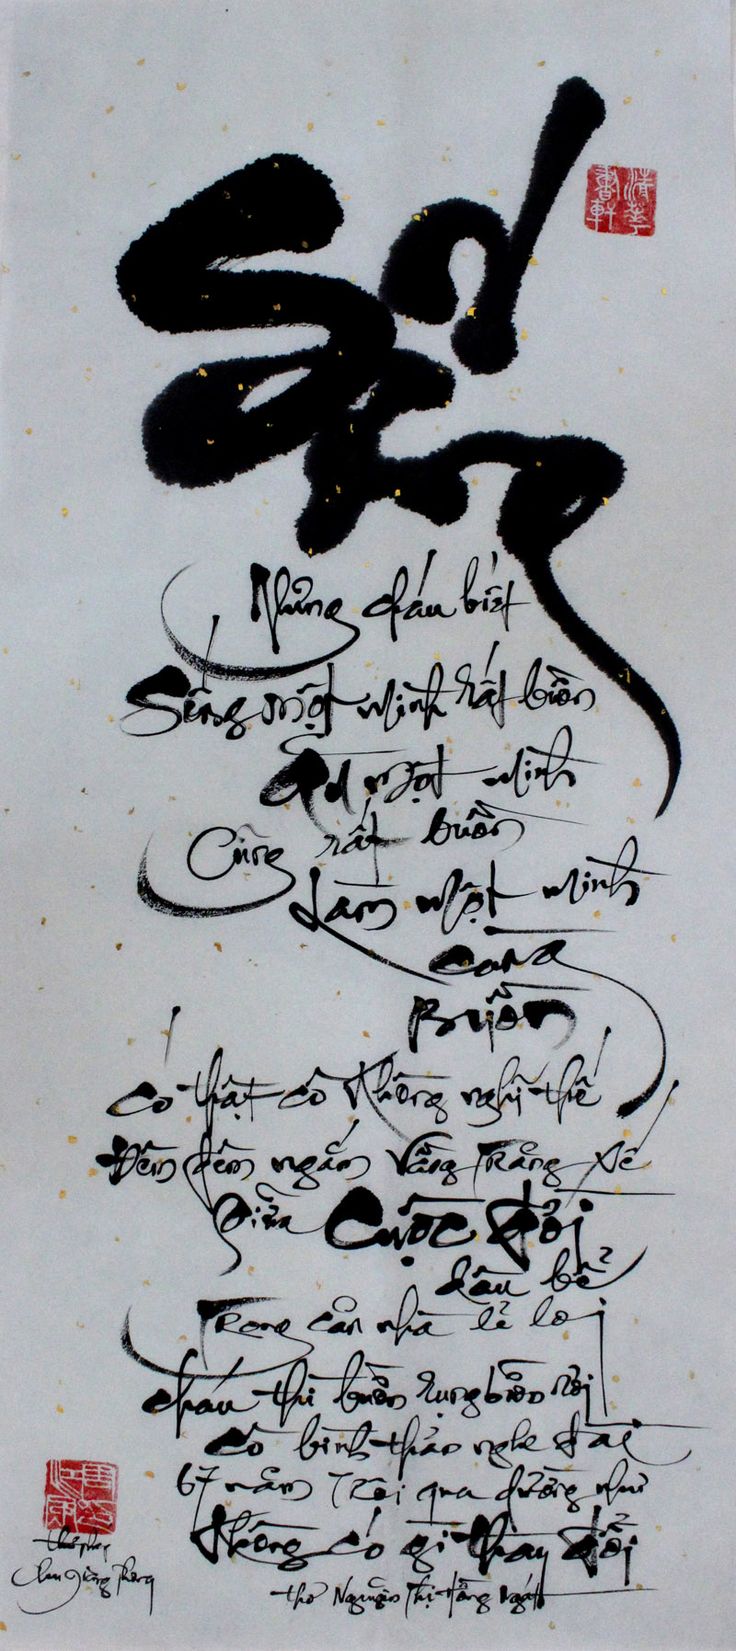 清華
書軒
Nhưng cháu biết
Sống một mình rất buồn
Ăn một mình
Cũng rất buồn
Làm một mình
càng
Buồn
Có thật cô không nghĩ thế
Đêm đêm ngắm vầng trăng xẻ
giữa Cuộc đời
dâu bể
Trong căn nhà lẻ loi
cháu thì buồn rưng buồn rơi
Cô bình thản nghe đài
67 năm trôi qua dường như
Không có gì thay đổi
thơ Nguyễn Thị Hồng Ngát
thư pháp